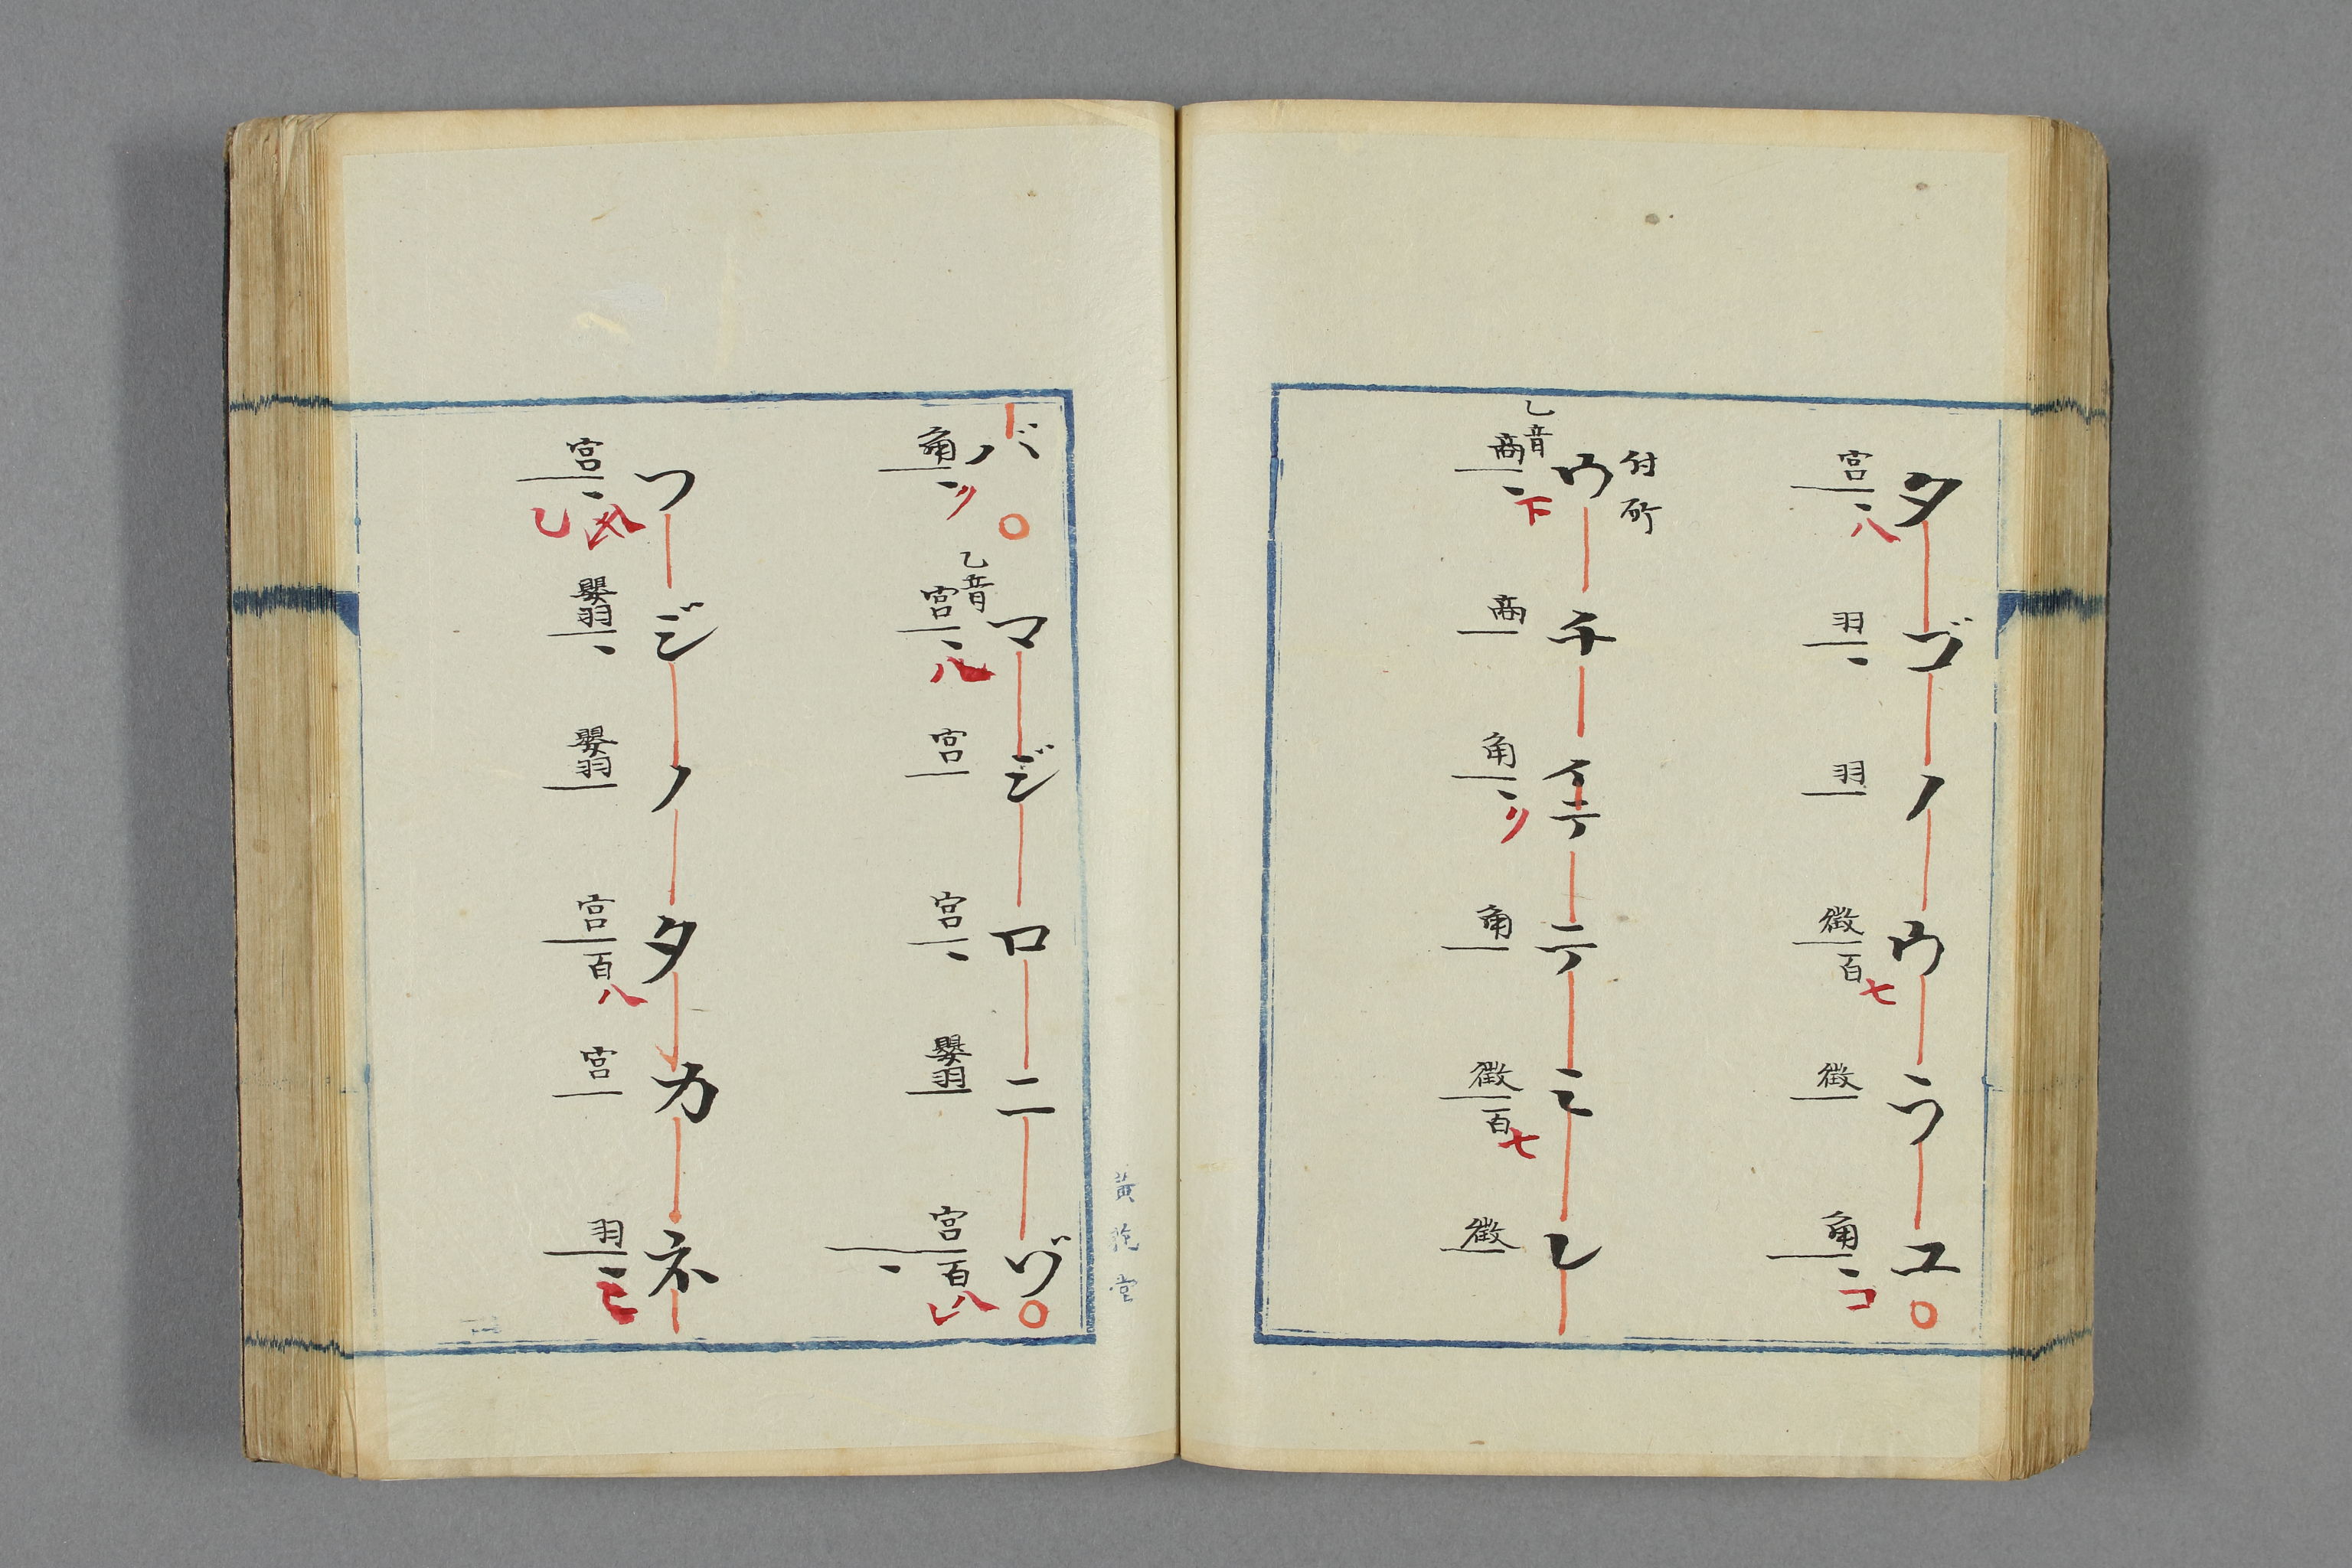 タゴノウラユ
宮八 羽 羽 徴百七 徴 角コ
付所
ウチイテテミレ
乙音
商下 商 角リ 角 徴百七 徴
バ マジロニヅ
乙音
角リ 宮八 宮 宮 嬰羽 宮百八
フジノタカネ
宮 嬰羽 嬰羽 宮百八 宮 羽